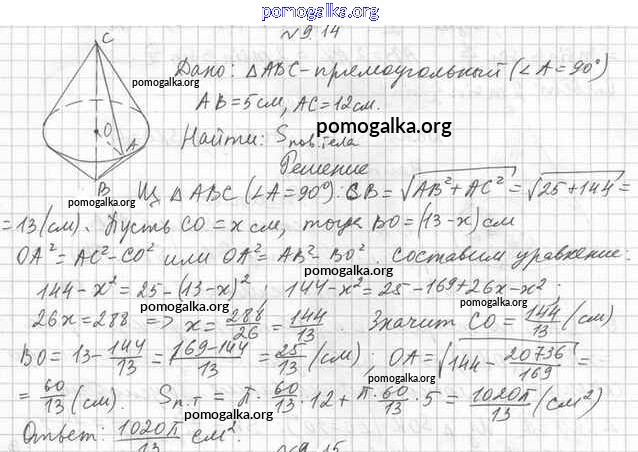 pomogalka.org
№9.14
C
Дано: △ABC-прямоугольный (∠A=90°)
pomogalka.org
AB=5см, AC=12см.
pomogalka.org
Найти: Sпов.тела
O
A
Решение
B
pomogalka.org
Из △ABC (∠A=90°): CB=√AB²+AC²=√25+144=
=13(см). Пусть CO=x см, тогда BO=(13-x)см
OA²=AC²-CO² или OA²=AB²-BO². Составим уравнение:
pomogalka.org
144-x²=25-(13-x)²; 144-x²=25-169+26x-x²;
pomogalka.org
26x=288 => x=288/26=144/13. Значит CO=144/13(см)
BO=13-144/13=(169-144)/13=25/13(см); OA=√144-20736/169=
pomogalka.org
=60/13(см). Sп.т=π·60/13·12+π·60/13·5=1020π/13(см²)
pomogalka.org
Ответ: 1020π/13 см².
pomogalka.org
№9.15